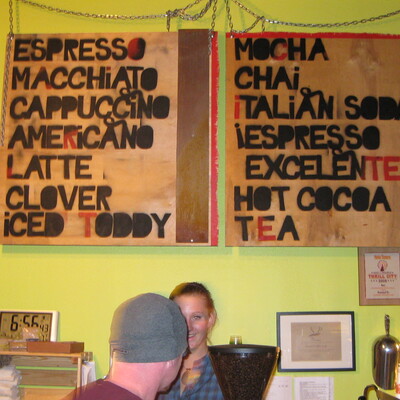 ESPRESSO
MACCHiATO
CAPPUCCINO
AMERICANO
LATTE
CLOVER
iCED TODDY
MOCHA
CHAi
iTALIAN SODA
iESPRESSO
EXCELENTE
HOT COCOA
TEA
6:56